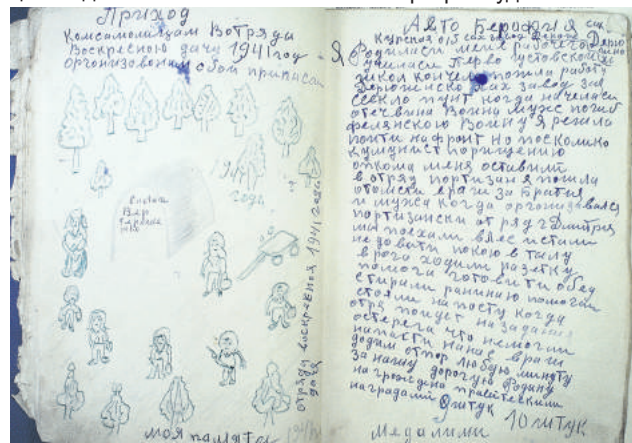 Приход
Комсамолицам Вотряды
Воскресною дачу 1941 год
организовоним обои приписан
1941
года
отряды воскрвсная 1941 года
дача
моя памятъ
Авто Берофия
Я Родилась меня рабочего
училась перво густовской
школ кончела пошла работу
завод зав
Секло пунт когда началась
отечвина Война муж погиб
фелянскою Войну я решила
поити на фронт но посколико
кумунист поришению
опкома меня оставили
в отряд портизан я пошла
отомсти враги за братия
и мужа когда организовался
портизански отряд г Дмитрия
мы поехали влес истали
недовати покою в тылу
врага ходили разетку
помога готовити обед
стирали раниною помогли
стояли на посту когда
отря поидет на задания
остерега что немогли
напасти нанас враги
додам отпор любую минуту
за нашу дорогую Родину
награждена практескими
наградами 9 штук
медалими 10 штук